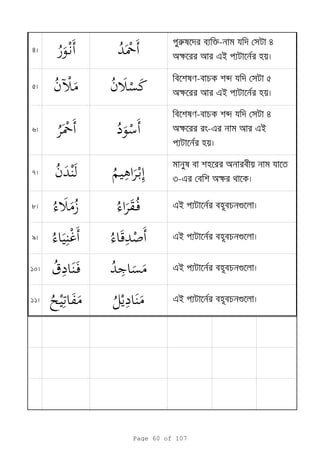 ৪। أَنْوَرُ أَحْمَدُ পুরুষদের ব্যক্তি-নাম যদি সেটা ৪
অক্ষরের আর এই প্যাটার্নের হয়।
৫। مَلْآنُ كَسْلَانُ বিশেষণ-বাচক শব্দ যদি সেটা ৫
অক্ষরের আর এই প্যাটার্নের হয়।
৬। أَحْمَرُ أَسْوَدُ বিশেষণ-বাচক শব্দ যদি সেটা ৪
অক্ষরের রং-এর নাম আর এই
প্যাটার্নের হয়।
৭। لَنْدَنُ إِبْرَاهِيمُ মানুষ বা শহরের অনারবীয় নাম যাতে
৩-এর বেশি অক্ষর থাকে।
৮। زُمَلَاءُ فُقَرَاءُ এই প্যাটার্নের বহুবচনগুলো।
৯। أَغْنِيَاءُ أَصْدِقَاءُ এই প্যাটার্নের বহুবচনগুলো।
১০। فَنَادِقُ مَسَاجِدُ এই প্যাটার্নের বহুবচনগুলো।
১১। مَفَاتِيْحُ مَنَادِيْلُ এই প্যাটার্নের বহুবচনগুলো।
Page 60 of 107